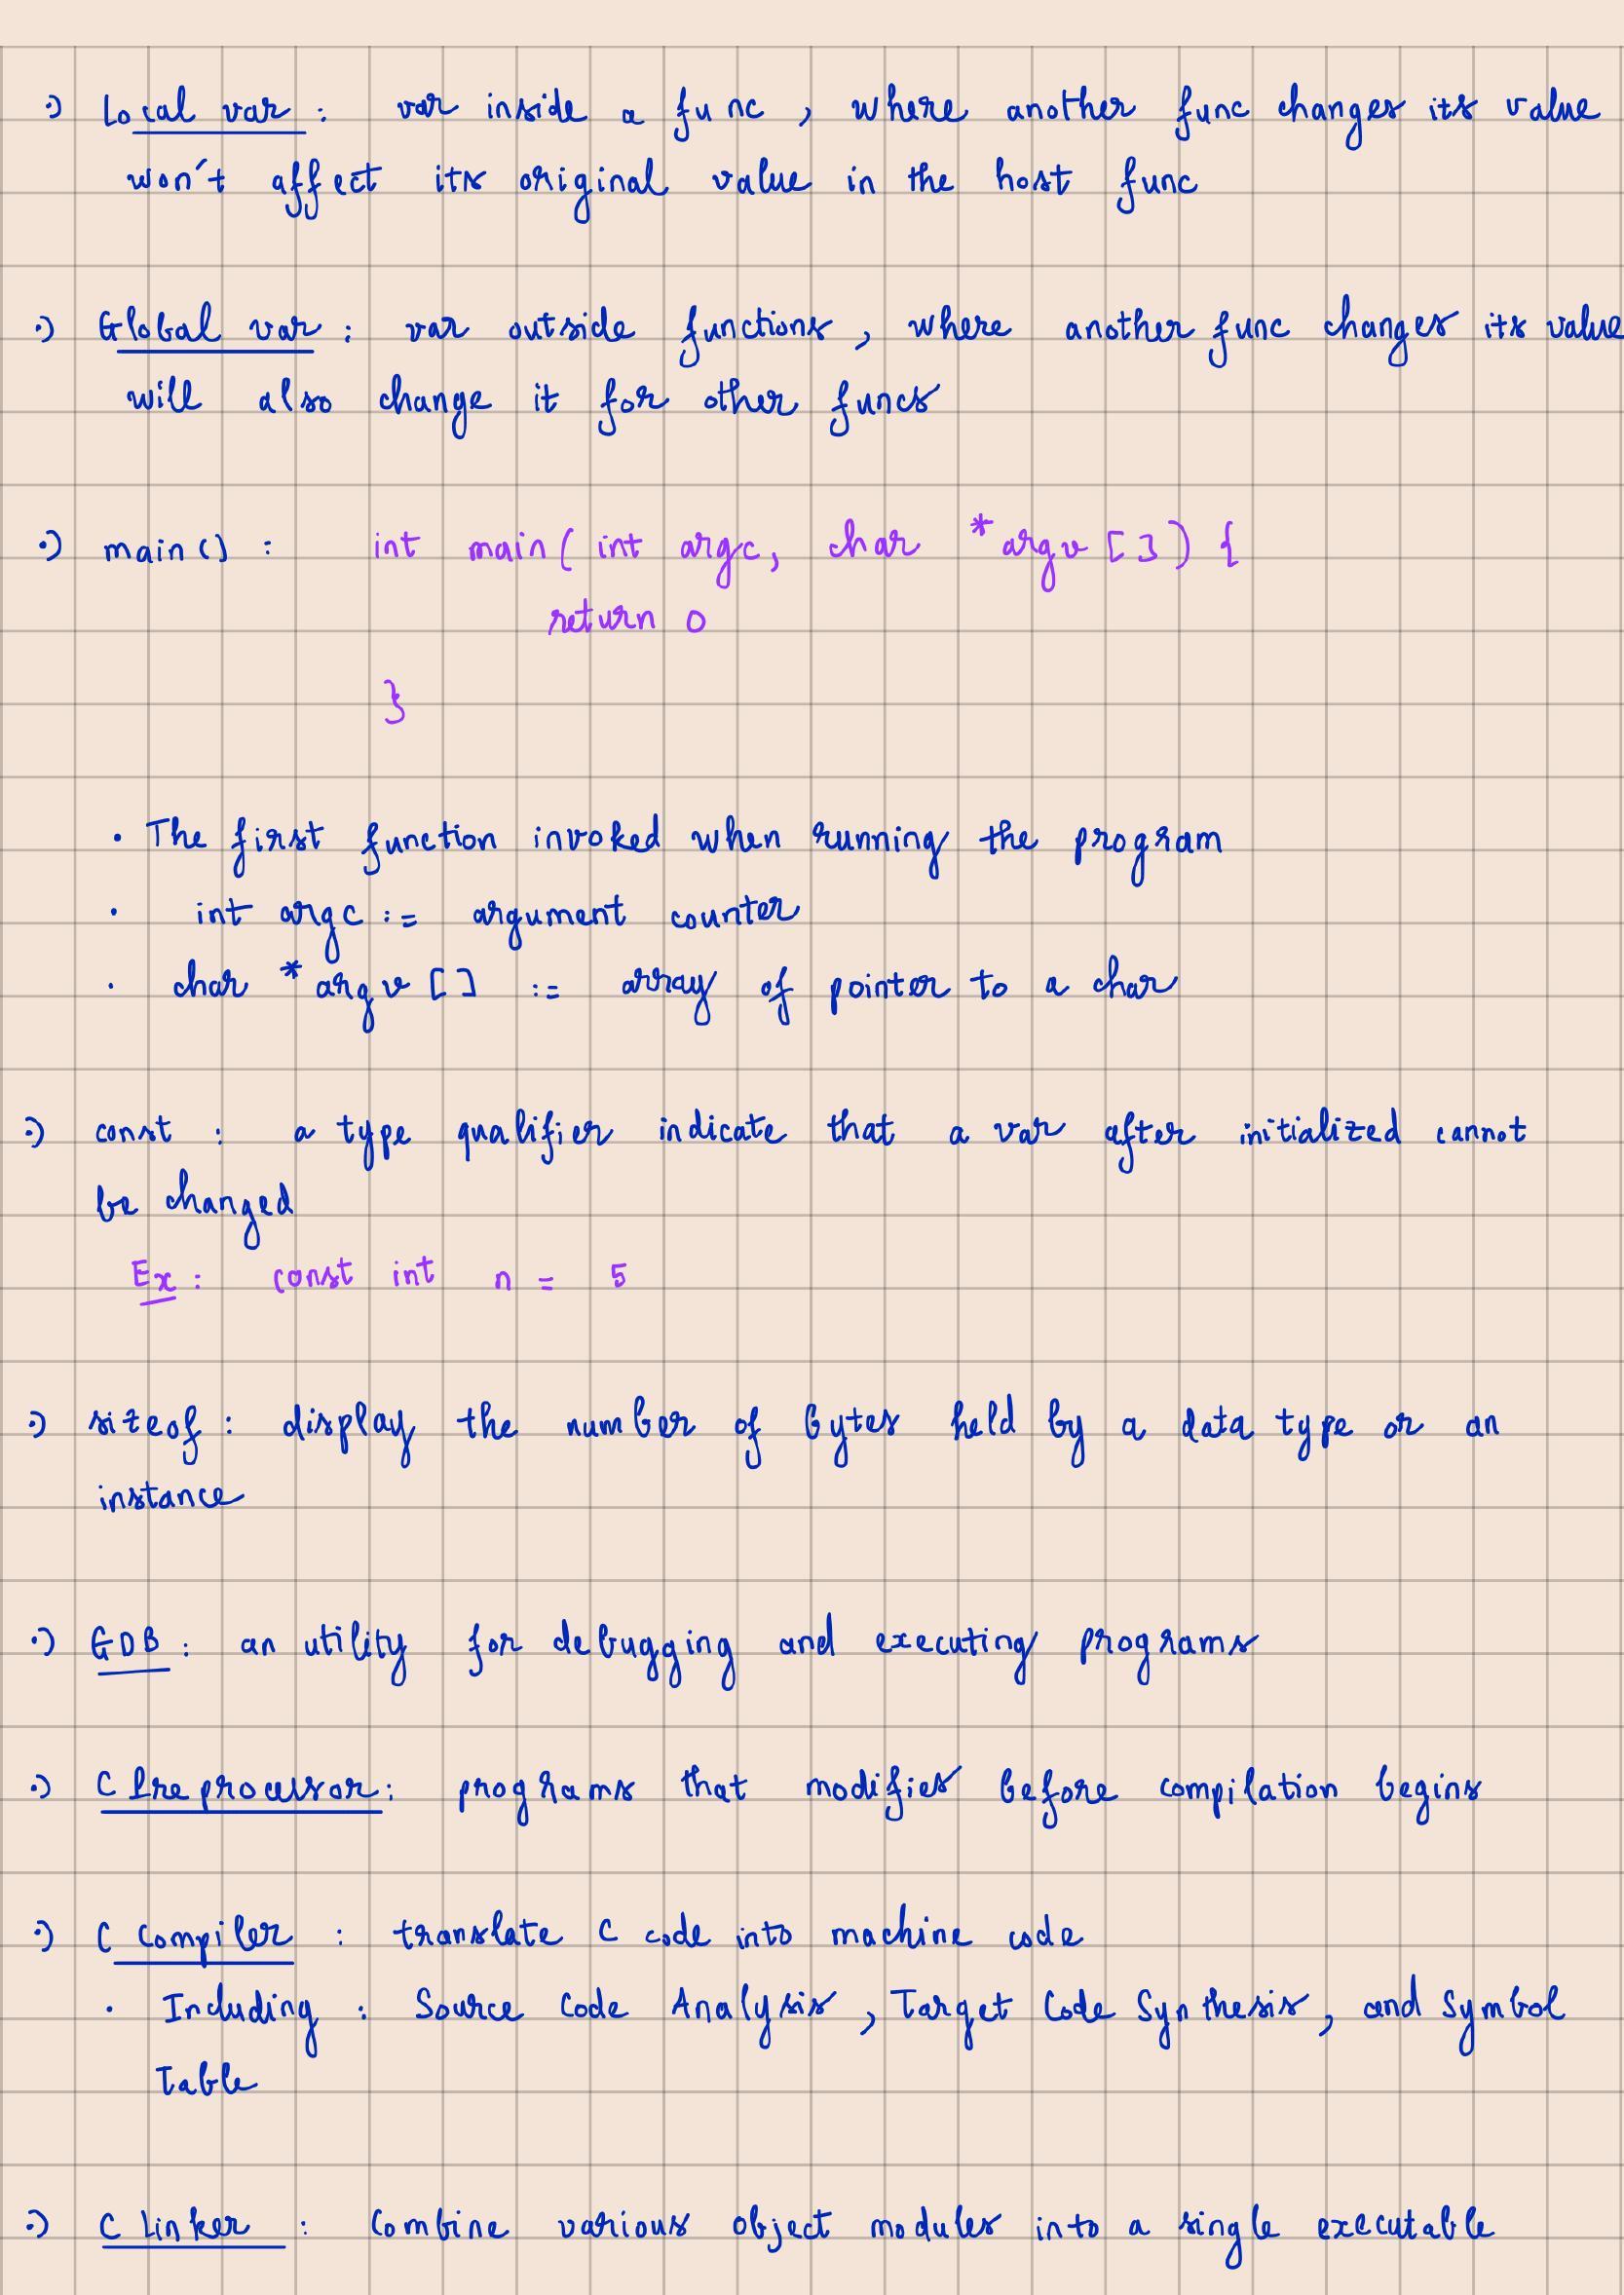 ·) Local var : var inside a func , where another func changes its value
won't affect its original value in the host func
·) Global var : var outside functions , where another func changes its value
will also change it for other funcs
·) main() : int main( int argc, char *argv []) {
return 0
}
· The first function invoked when running the program
· int argc := argument counter
· char *argv [] := array of pointer to a char
·) const : a type qualifier indicate that a var after initialized cannot
be changed
Ex : const int n = 5
·) sizeof : display the number of bytes held by a data type or an
instance
·) GDB : an utility for debugging and executing programs
·) C Preprocessor : programs that modifies before compilation begins
·) C Compiler : translate C code into machine code
· Including : Source Code Analysis , Target Code Synthesis , and Symbol
Table
·) C Linker : Combine various object modules into a single executable